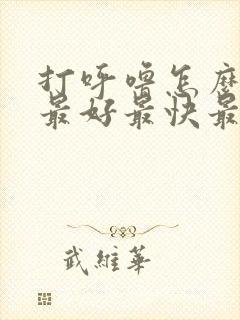 打呼噜怎麼
最好最快最
武維華